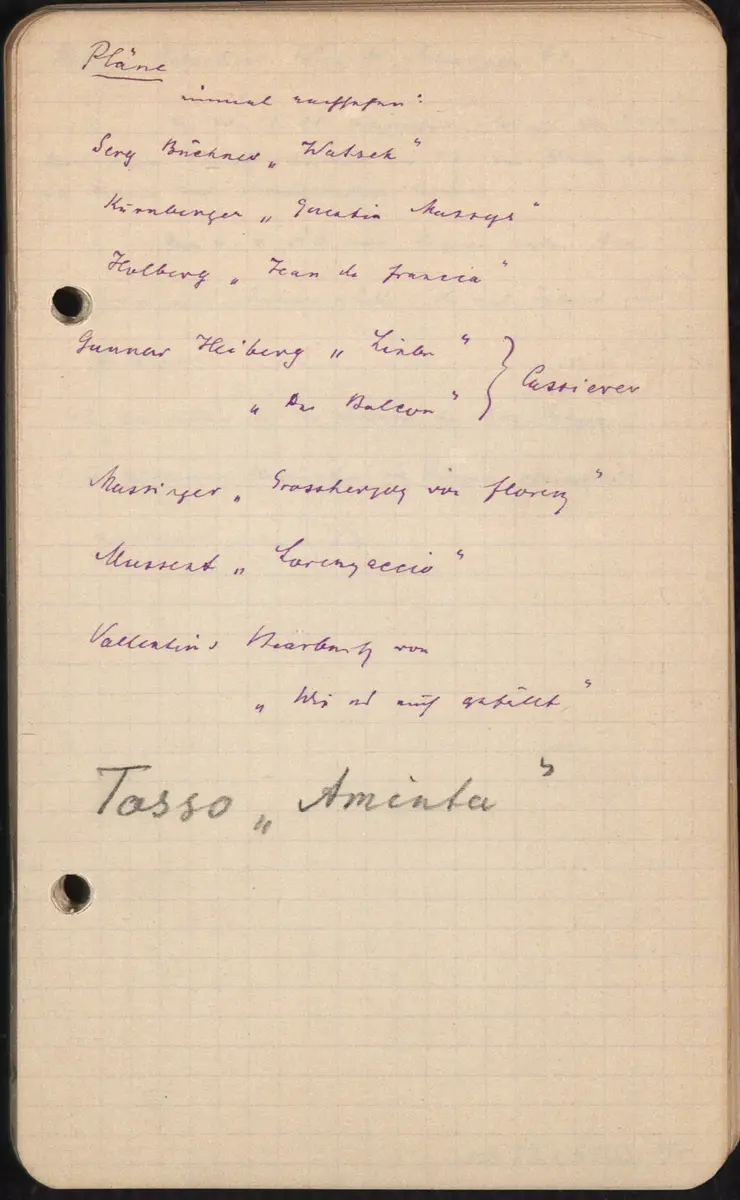 Pläne
einmal nachsehen:
Georg Büchner „Wutzek“
Kürnberger „Quentin Massys“
Holberg „Jean de Francia“
Gunnar Heiberg „
„Der Balcon“ } Cassierer
Massinger „Grossherzog von Florenz“
Mussent „Lorenzaccio“
Vallentins Bearbeitg von
„Wie es euch gefällt“
Tasso „Aminta“